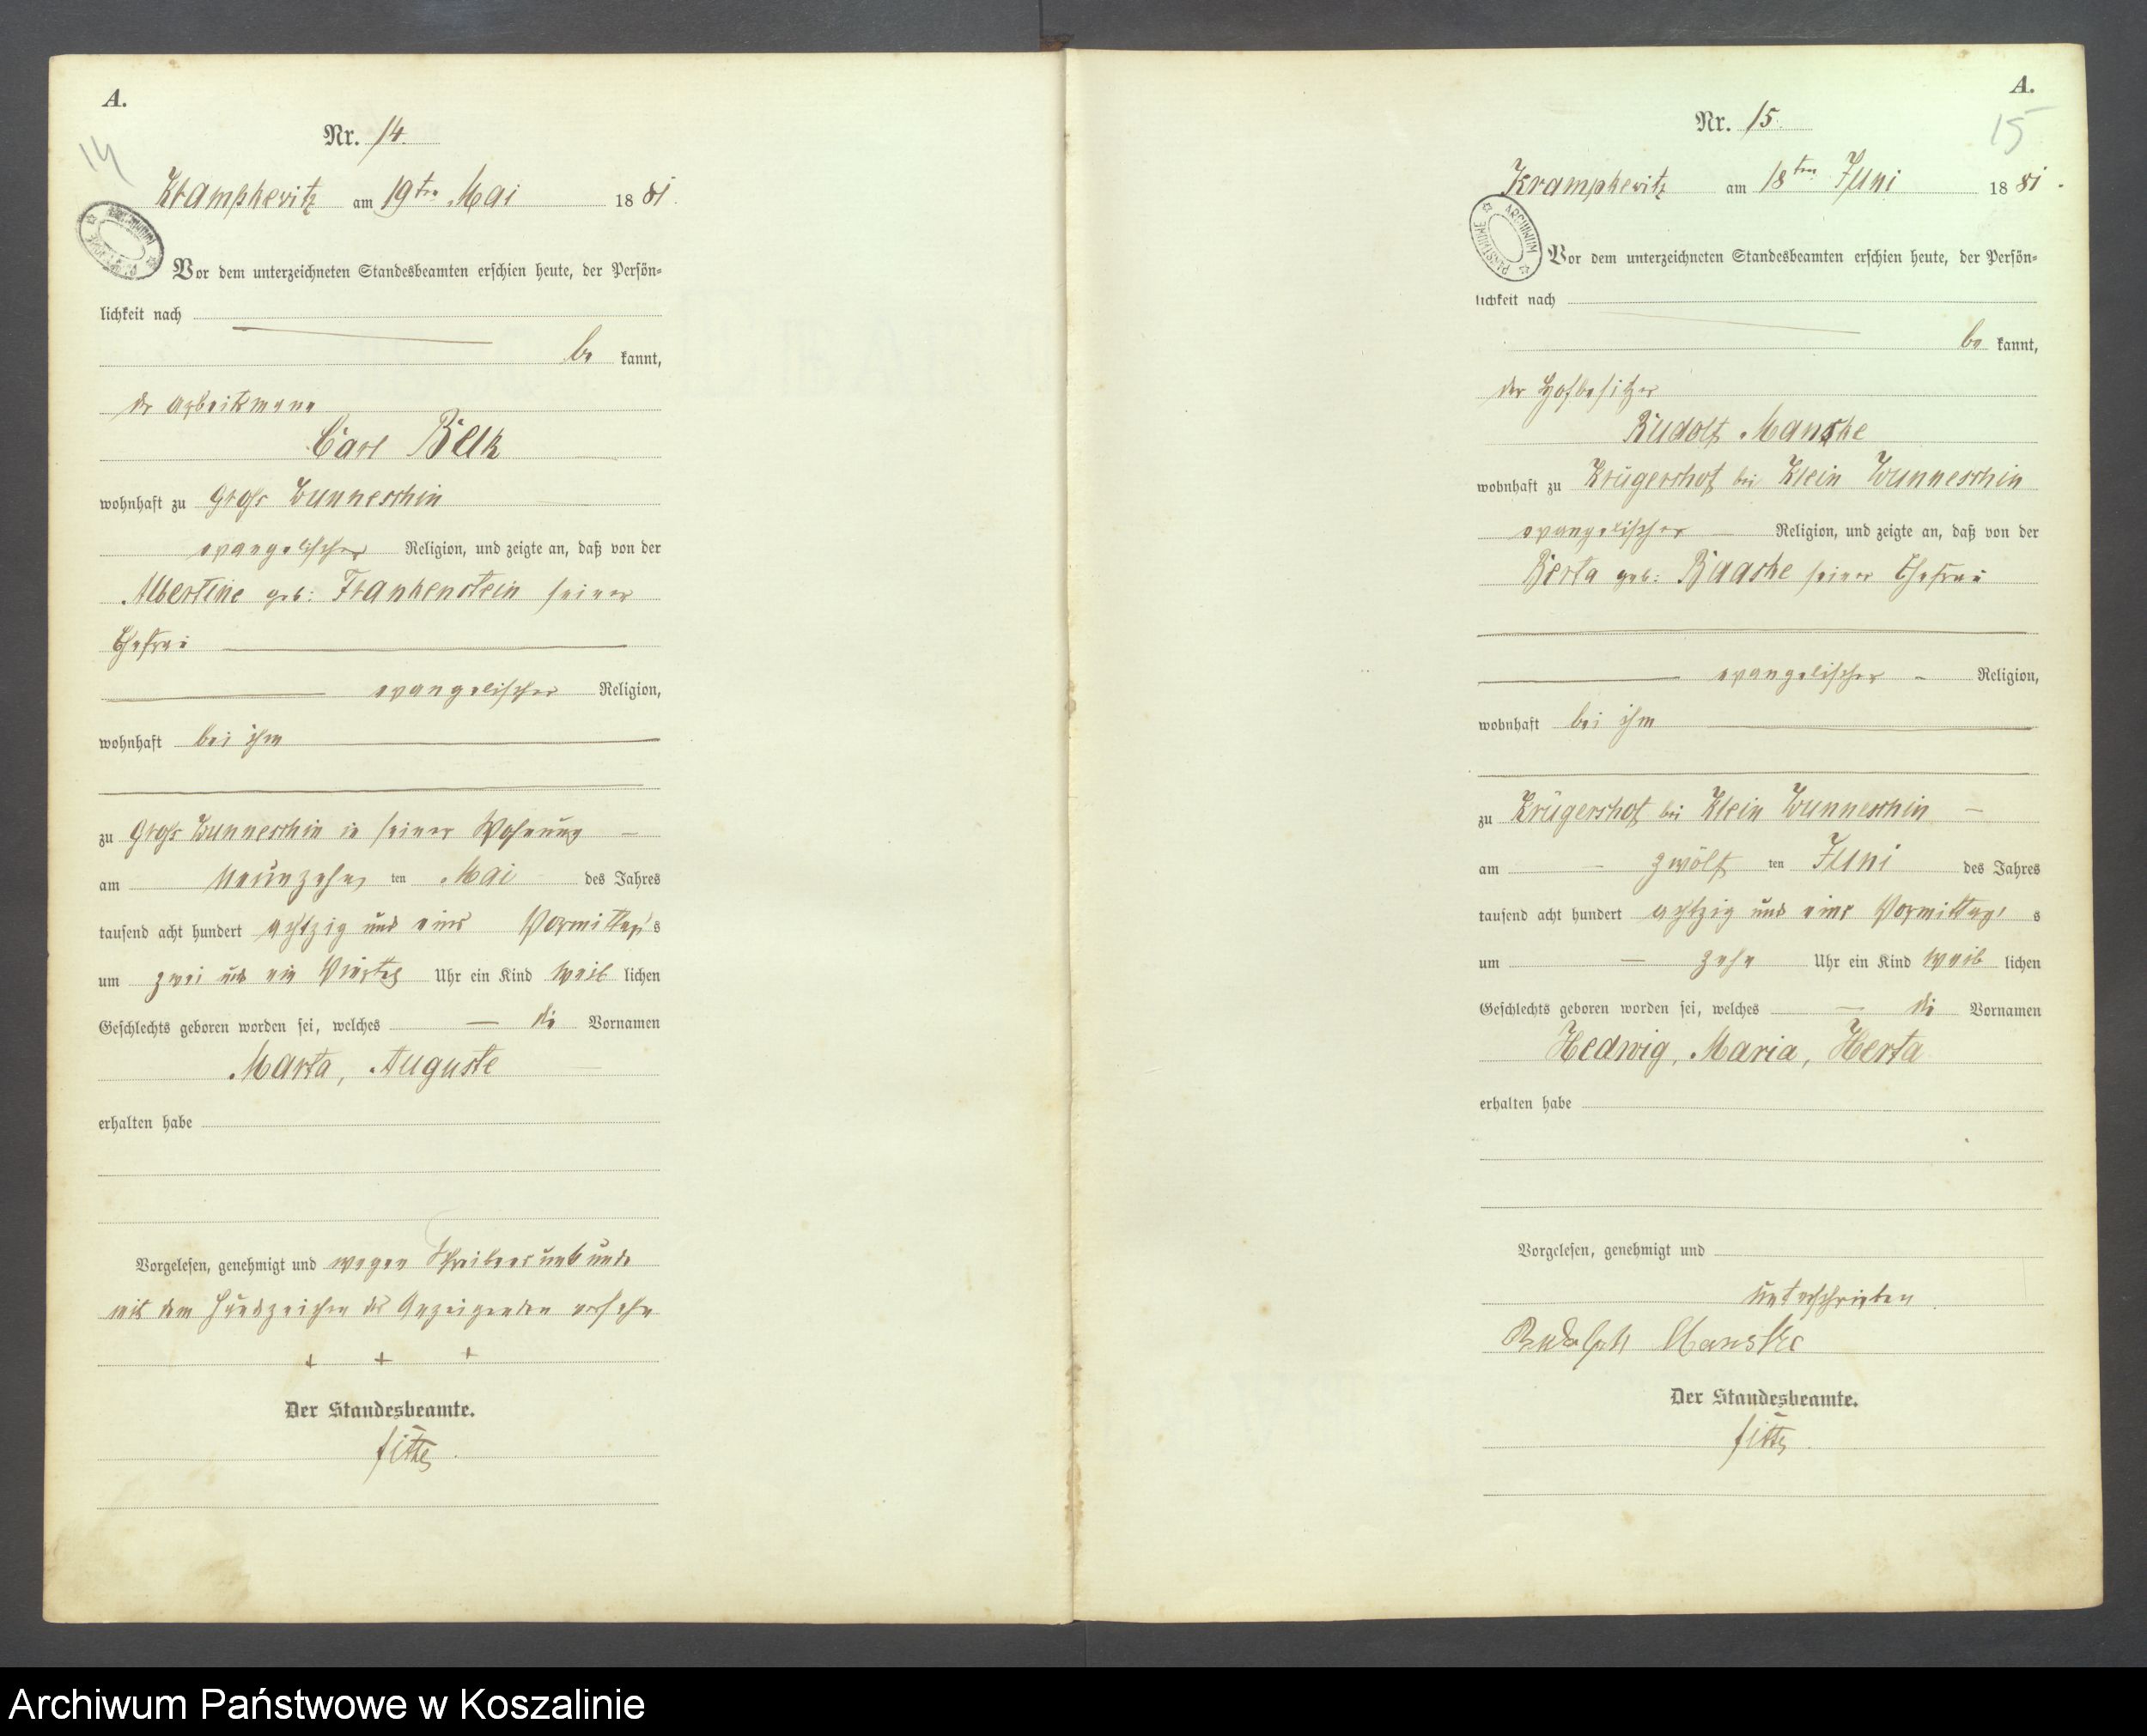 A.
Nr. 14.
14
Krampkewitz am 19ten Mai 1881.
Vor dem unterzeichneten Standesbeamten erschien heute, der Persön-
lichkeit nach
be kannt,
der Arbeitsmann
Carl
wohnhaft zu Groß Wunneschin
evangelischer Religion, und zeigte an, daß von der
Albertine geb: Frankenstein seiner
Ehefrau
evangelischer Religion,
wohnhaft bei ihm
zu Groß Wunneschin in seiner Wohnung
am neunzehn ten Mai des Jahres
tausend acht hundert achtzig und eins Vormittags
um zwei und ein Viertel Uhr ein Kind weib lichen
Geschlechts geboren worden sei, welches die Vornamen
Marta, Auguste
erhalten habe
Vorgelesen, genehmigt und wegen Schreibensunkunde
mit dem Handzeichen des Anzeigenden versehn
+ + +
Der Standesbeamte.
A.
Nr. 15.
15
Krampkewitz am 18ten Juni 1881.
ARCHIWUM PAŃSTWOWE
Vor dem unterzeichneten Standesbeamten erschien heute, der Persön-
lichkeit nach
be kannt,
der Hofbesitzer
Rudolf Manske
wohnhaft zu Krügershof bei Klein Wunneschin
evangelischer Religion, und zeigte an, daß von der
Berta geb: Baaske seiner Ehefrau
evangelischer Religion,
wohnhaft bei ihm
zu Krügershof bei Klein Wunneschin
am zwölf ten Juni des Jahres
tausend acht hundert achtzig und eins Vormittags
um zehn Uhr ein Kind weib lichen
Geschlechts geboren worden sei, welches die Vornamen
Hedwig, Maria, Herta
erhalten habe
Vorgelesen, genehmigt und
unterschrieben
Rudolph Manske
Der Standesbeamte.
Archiwum Państwowe w Koszalinie